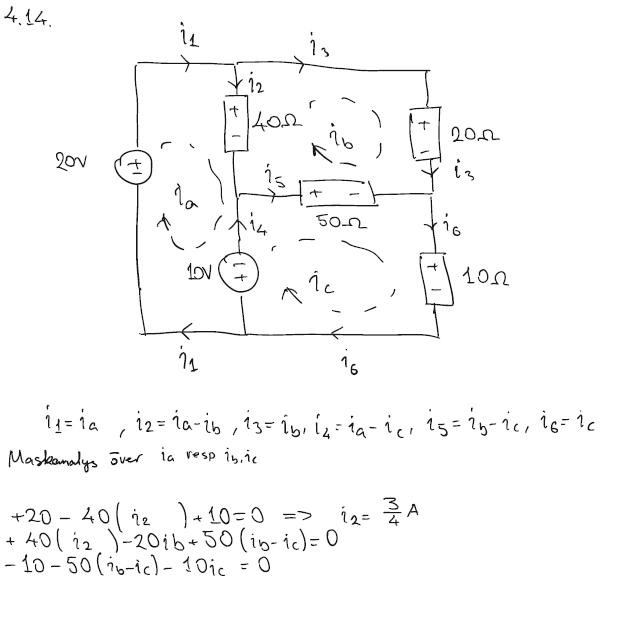 4.14.
i1 i3
i2
+ 40Ω
-
ib
+ 20Ω
-
20V
±
ia
i5
i3
+ -
50Ω
i4
i6
10V
-
+
ic
+ 10Ω
-
i1 i6
i1 = ia , i2 = ia - ib , i3 = ib, i4 = ia - ic, i5 = ib - ic, i6 = ic
Maskanalys över ia resp ib, ic
+20 - 40( i2 ) + 10 = 0 => i2 = 3/4 A
+ 40( i2 ) - 20ib + 50(ib - ic) = 0
- 10 - 50(ib - ic) - 10ic = 0